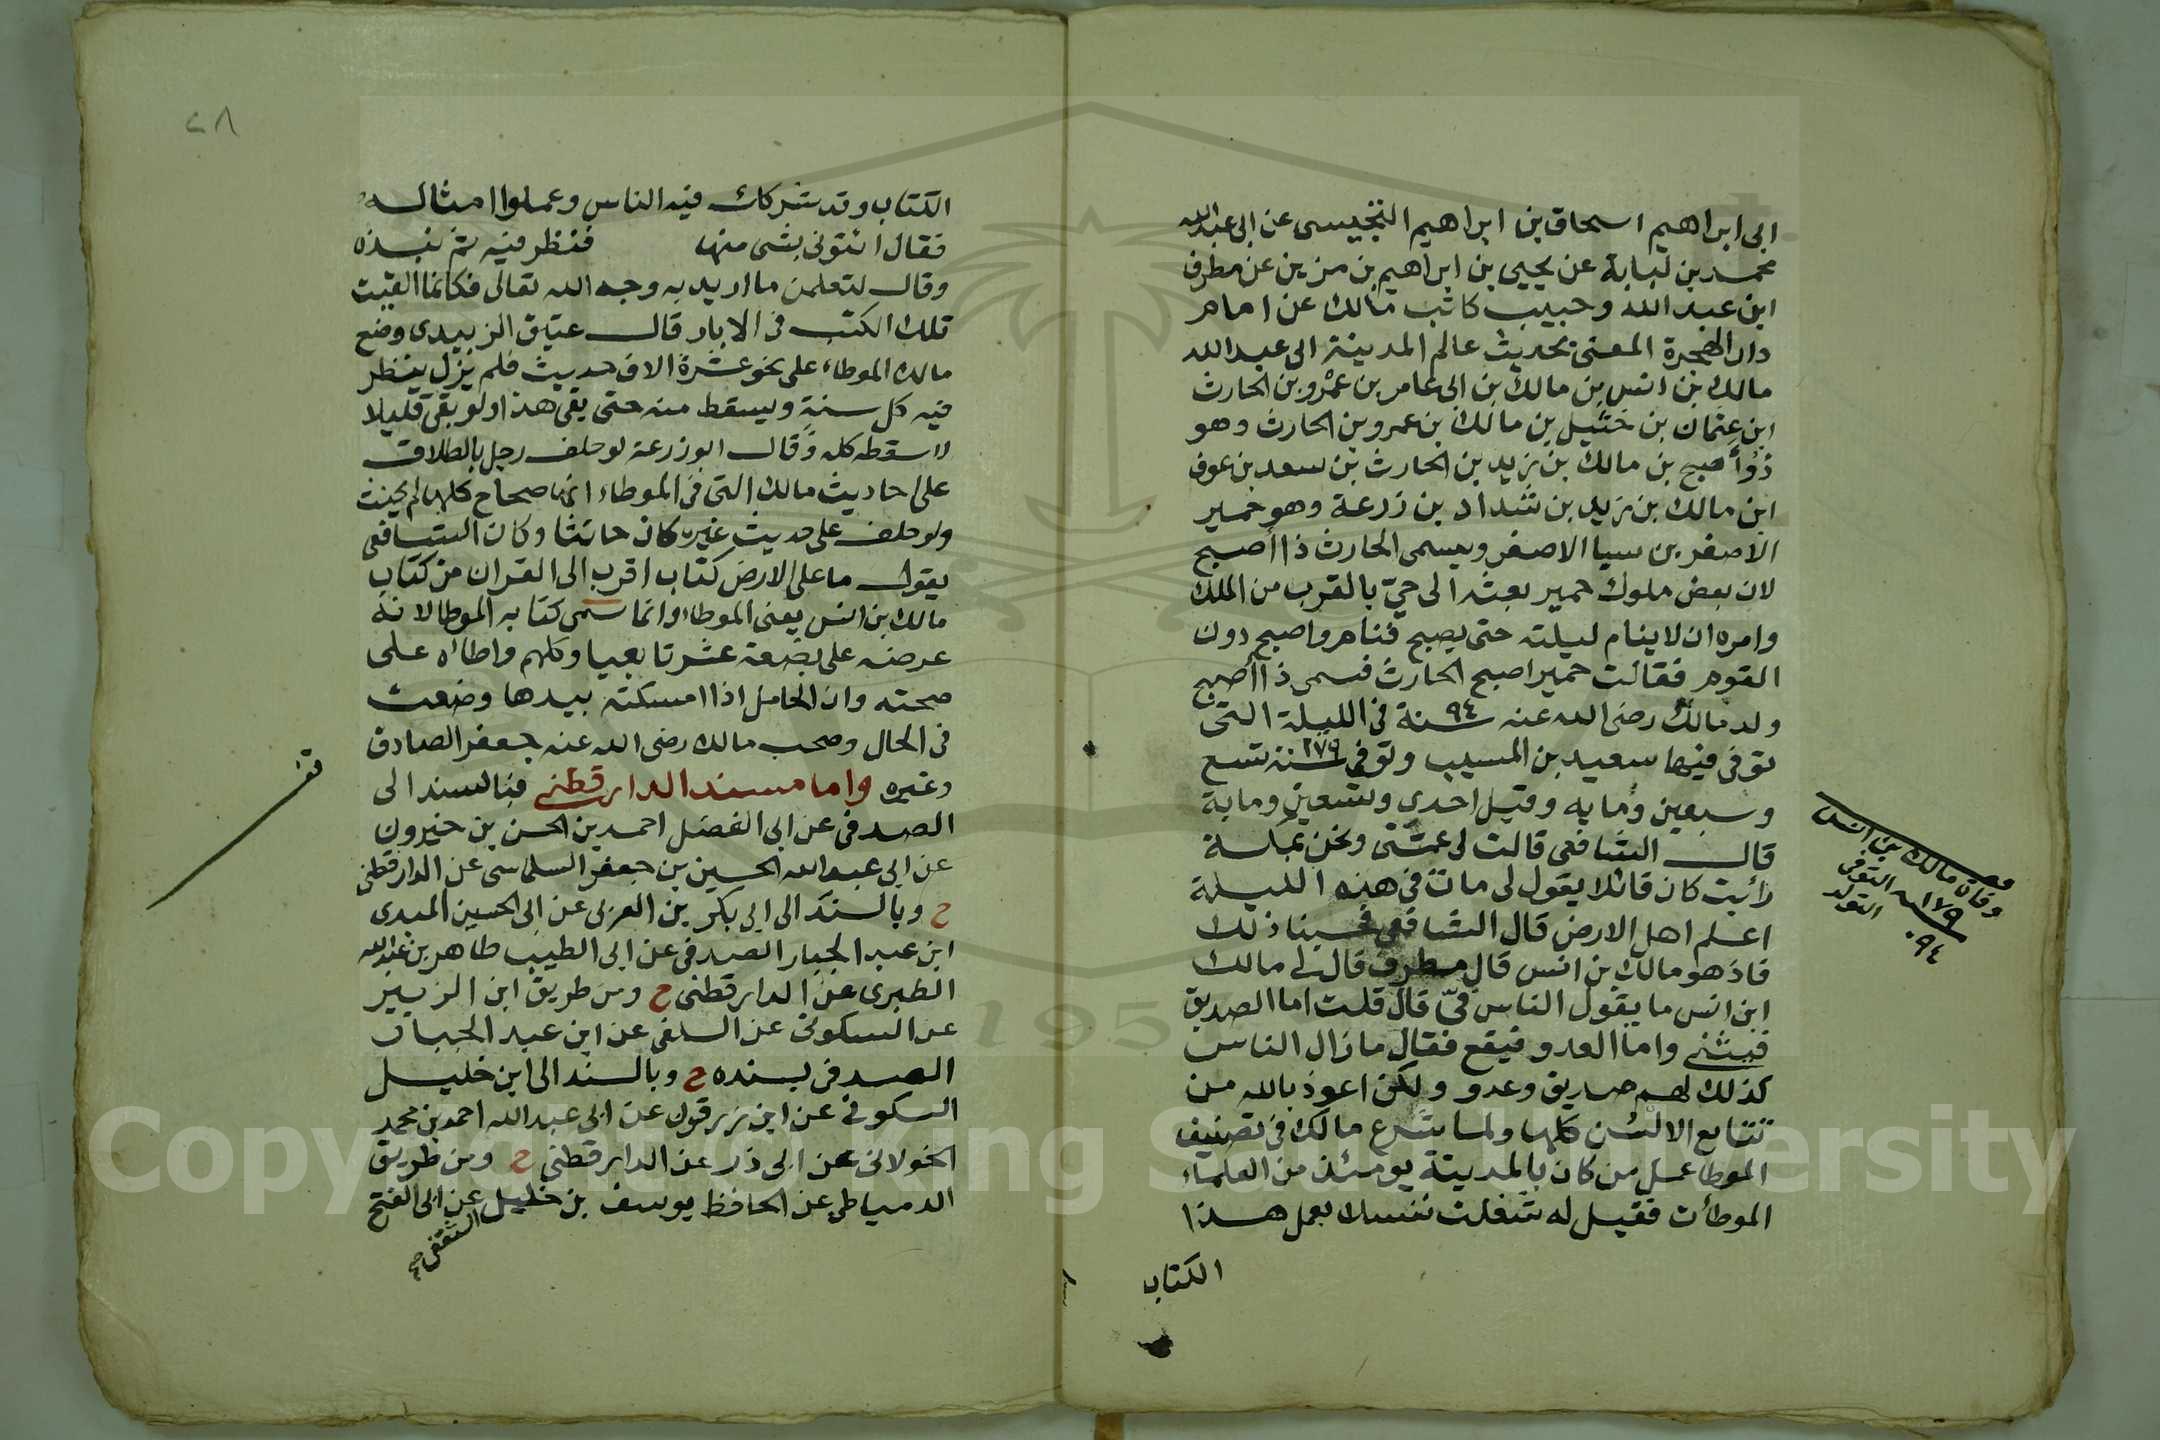 ابى ابراهيم اسحاق بن ابراهيم التجيبسى عن ابى عبدالله
محمد بن لبابة عن يحيى بن ابراهيم بن مزين عن مطرف
ابن عبد الله وحبيب كاتب مالك عن امام
دار الهجرة المعنى بحديث عالم المدينة ابى عبد الله
مالك بن انس بن مالك بن ابى عامر بن عمرو بن الحارث
ابن عثمان بن خثيل بن مالك بن عمرو بن الحارث وهو
ذو أصبح بن مالك بن زيد بن الحارث بن سعد بن عوف
ابن مالك بن زيد بن شداد بن زرعة وهو حمير
الاصغر بن سبا الاصغر ويسمى الحارث ذا أصبح
لان بعض ملوك حمير بعثه الى حيّ بالقرب من الملك
وامره ان لا ينام ليلته حتى يصبح فنام واصبح دون
القوم فقالت حمير اصبح الحارث فسمى ذا أصبح
ولد مالك رضى الله عنه سنة ٩٤ فى الليلة التى
توفى فيها سعيد بن المسيب وتوفى سنة ١٧٩ تسع
وسبعين ومايه وقيل احدى وتسعين وماية
قال الشافعى قالت لى عمتى ونحن بمكة
رأيت كان قائلا يقول لى مات فى هذه الليلة
اعلم اهل الارض قال الشافعى فحسبنا ذلك
فاذ هو مالك بن انس قال مطرف قال لى مالك
ابن انس ما يقول الناس فيّ قال قلت اما الصديق
فيثنى واما العدو فيقع فقال ما زال الناس
كذلك لهم صديق وعدو ولكن اعوذ بالله من
تتابع الالسن كلها ولما شرع مالك فى تصنيف
الموطا عمل من كان بالمدينة يومئذ من العلماء
الموطأت فقيل له شغلت نفسك بعمل هذا
الكتاب
وفاة مالك بن انس
١٧٩ سنه التوفى
التولد
٩٤
٢٨
الكتاب وقد شركك فيه الناس وعملوا امثاله
فقال ائتونى بشى منها فنظر فيه ثم نبذه
وقال لتعلمن ما اريد به وجه الله تعالى فكانما القيت
تلك الكتب فى الابار قال عتيق الزبيدى وضع
مالك الموطاء على نحو عشرة الاف حديث فلم يزل ينظر
فيه كل سنة ويسقط منه حتى بقى هذا ولو بقى قليلا
لاسقطه كله وقال ابو زرعة لو حلف رجل بالطلاق
على احاديث مالك التى فى الموطاء انها صحاح كلها لم يحنث
ولو حلف على حديث غيره كان حانثا وكان الشافعى
يقول ما على الارض كتاب اقرب الى القران من كتاب
مالك بن انس يعنى الموطاء وانما سمى كتابه الموطا لانه
عرضه على بضعة عشر تابعيا وكلهم واطاه على
صحته وان الحامل اذا امسكته بيدها وضعت
فى الحال وصحب مالك رضى الله عنه جعفر الصادق
وغيره واما مسند الدارقطنى فبالسند الى
الصدفى عن ابى الفضل احمد بن الحسن بن خيرون
عن ابى عبد الله الحسين بن جعفر السلماسى عن الدارقطنى
ح وبالسند الى ابى بكر بن العربى عن ابى الحسين المبدى
ابن عبد الجبار الصدفى عن ابى الطيب طاهر بن عبدالله
الطبرى عن الدارقطنى ح ومن طريق ابن الزبير
عن السكونى عن السلفى عن ابن عبد الجبار
الصدفى بسنده ح وبالسند الى ابن خليل
السكونى عن ابن زرقون عن ابى عبد الله احمد بن محمد
الخولانى عن ابى ذر عن الدارقطنى ح ومن طريق
الدمياطى عن الحافظ يوسف بن خليل عن ابى الفتح
الثقفى
Copyright © King Saud University
1957